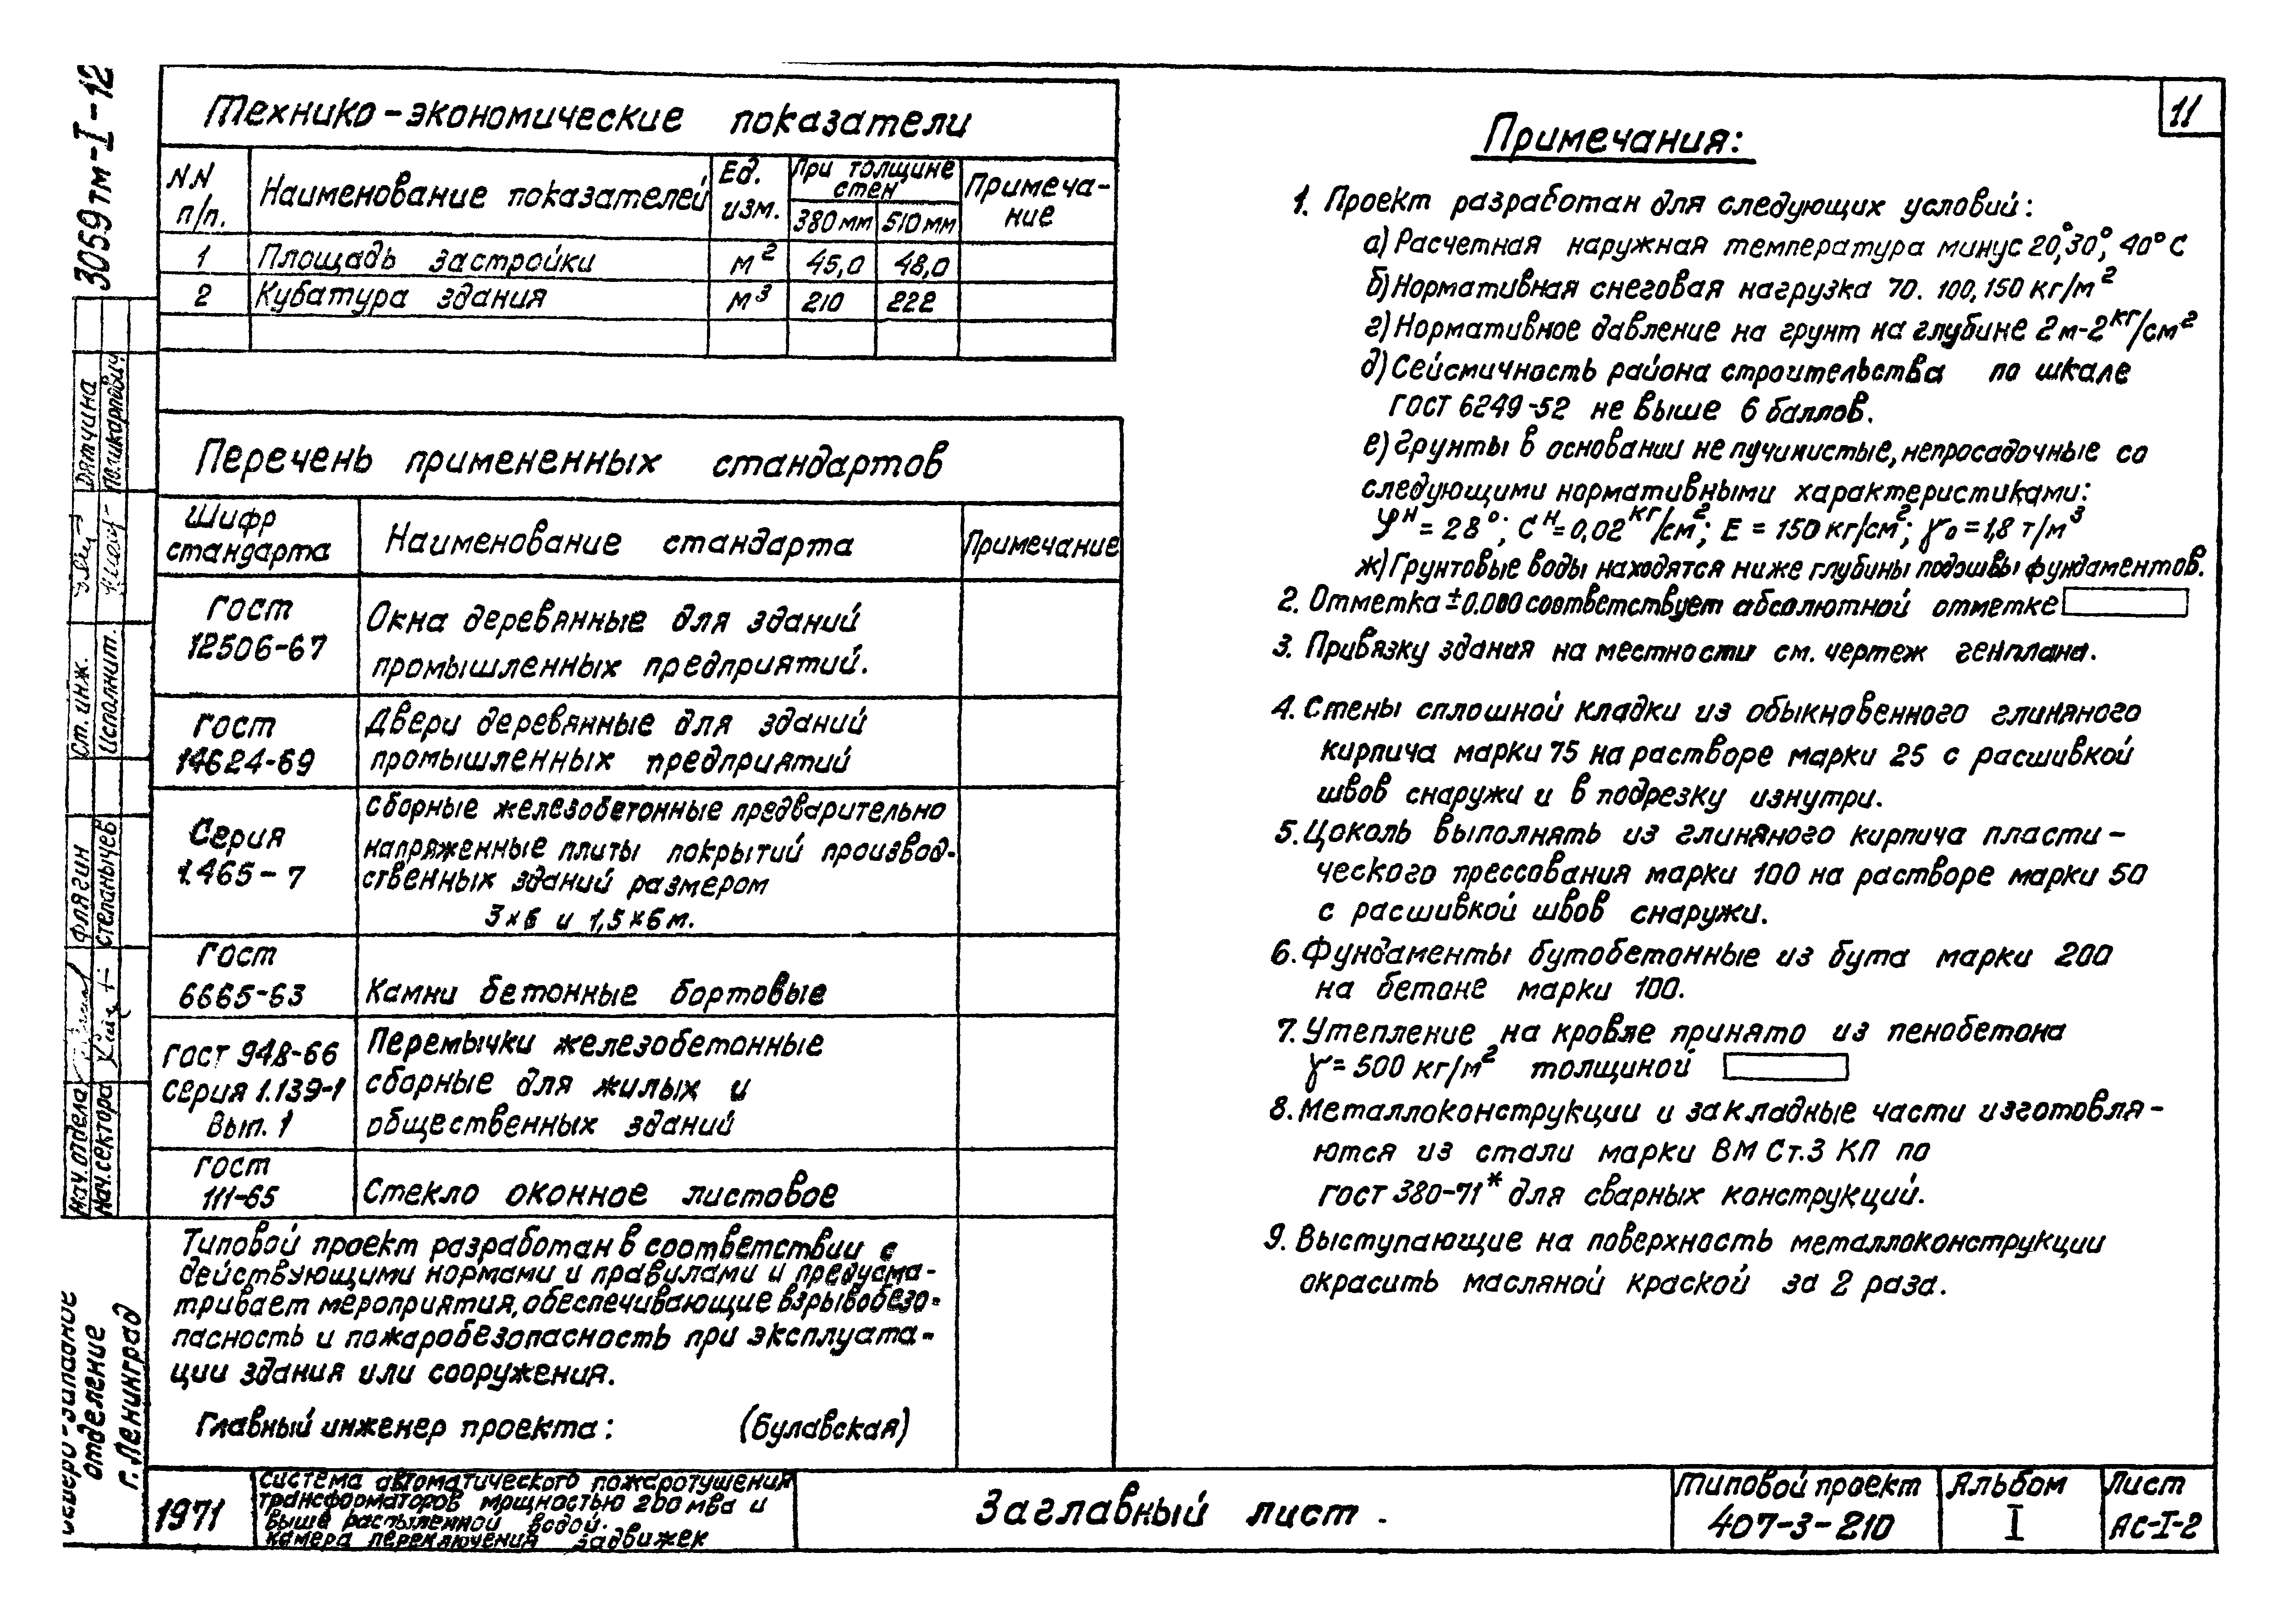 3059тм-I-12
11
Технико-экономические показатели
N.N п/п.
Наименование показателей
Ед. изм.
При толщине стен
380 мм
510 мм
Примеча-
ние
1 Площадь застройки м² 45,0 48,0
2 Кубатура здания м³ 210 222
Перечень примененных стандартов
Шифр стандарта
Наименование стандарта
Примечание
ГОСТ
12506-67
Окна деревянные для зданий
промышленных предприятий.
ГОСТ
14624-69
Двери деревянные для зданий
промышленных предприятий
Серия
1.465-7
Сборные железобетонные предварительно
напряженные плиты покрытий производ-
ственных зданий размером
3×6 и 1,5×6м.
ГОСТ
6665-63
Камни бетонные бортовые
ГОСТ 948-66
Серия 1.139-1
Вып. 1
Перемычки железобетонные
сборные для жилых и
общественных зданий
ГОСТ
111-65
Стекло оконное листовое
Типовой проект разработан в соответствии с
действующими нормами и правилами и предусма-
тривает мероприятия, обеспечивающие взрывобезо-
пасность и пожаробезопасность при эксплуата-
ции здания или сооружения.
Главный инженер проекта: (Булавская)
Примечания:
1. Проект разработан для следующих условий:
а) Расчетная наружная температура минус 20°, 30°, 40° С
б) Нормативная снеговая нагрузка 70. 100, 150 кг/м²
г) Нормативное давление на грунт на глубине 2м-2кг/см²
д) Сейсмичность района строительства по шкале
ГОСТ 6249-52 не выше 6 баллов.
е) Грунты в основании не пучинистые, непросадочные со
следующими нормативными характеристиками:
φᴴ = 28°; Cᴴ = 0,02 кг/см²; E = 150 кг/см²; γ₀ = 1,8 т/м³
ж) Грунтовые воды находятся ниже глубины подошвы фундаментов.
2. Отметка ±0.000 соответствует абсолютной отметке
3. Привязку здания на местности см. чертеж генплана.
4. Стены сплошной кладки из обыкновенного глиняного
кирпича марки 75 на растворе марки 25 с расшивкой
швов снаружи и в подрезку изнутри.
5. Цоколь выполнять из глиняного кирпича пласти-
ческого прессования марки 100 на растворе марки 50
с расшивкой швов снаружи.
6. Фундаменты бутобетонные из бута марки 200
на бетоне марки 100.
7. Утепление на кровле принято из пенобетона
γ = 500 кг/м² толщиной
8. Металлоконструкции и закладные части изготовля-
ются из стали марки ВМ Ст.3 КП по
ГОСТ 380-71* для сварных конструкций.
9. Выступающие на поверхность металлоконструкции
окрасить масляной краской за 2 раза.
Дятчина
Поликарпович
Ст. инж.
Исполнит.
Флягин
Степанычев
Нач. отдела
Нач. сектора
Северо-западное
отделение
г. Ленинград
1971
Система автоматического пожаротушения
трансформаторов мощностью 200 мва и
выше распыленной водой.
Камера переключения задвижек
Заглавный лист.
Типовой проект
407-3-210
Альбом
I
Лист
АС-I-2